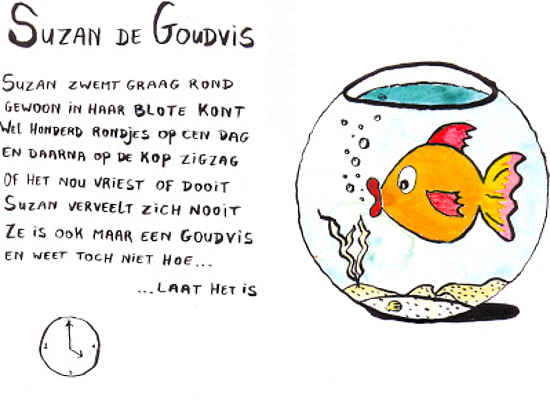 SUZAN DE GOUDVIS
SUZAN ZWEMT GRAAG ROND
GEWOON IN HAAR BLOTE KONT
WEL HONDERD RONDJES OP EEN DAG
EN DAARNA OP DE KOP ZIGZAG
OF HET NOU VRIEST OF DOOIT
SUZAN VERVEELT ZICH NOOIT
ZE IS OOK MAAR EEN GOUDVIS
EN WEET TOCH NIET HOE...
...LAAT HET IS